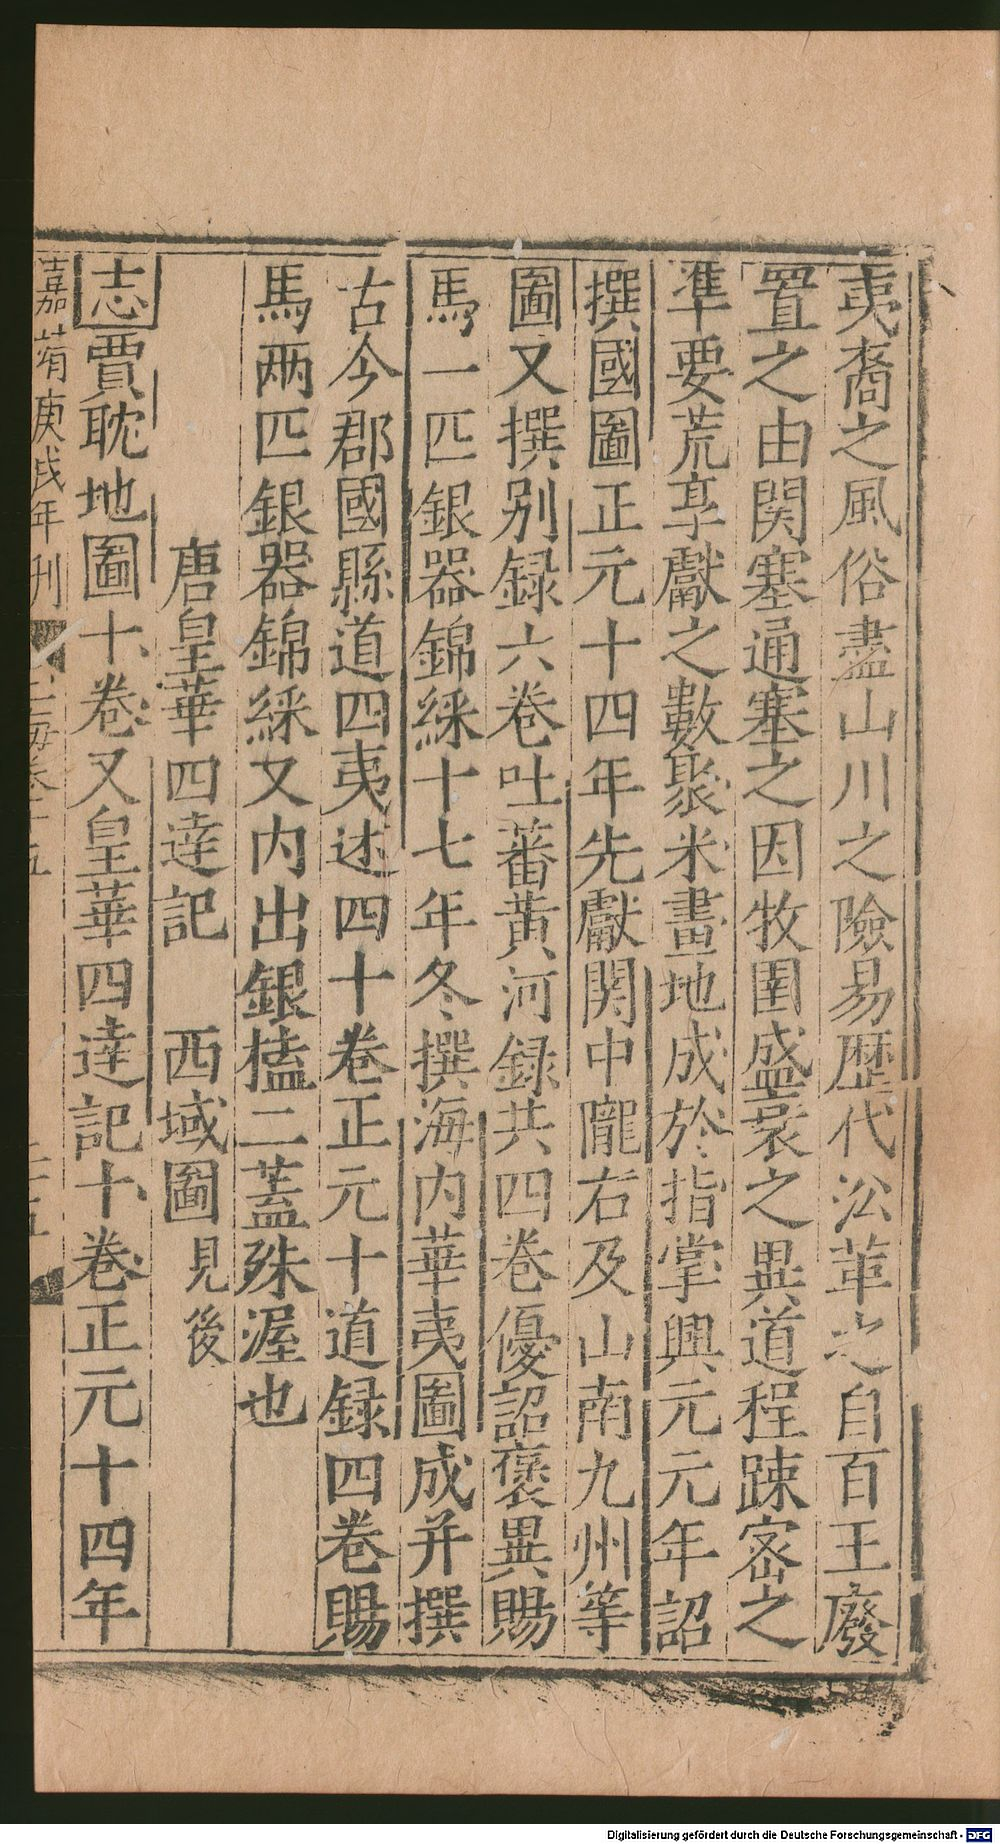 夷裔之風俗盡山川之險易歴代沿革之自百王廢
置之由関塞通塞之因牧圉盛衰之異道程踈宻之
準要荒享獻之數聚米畫地成於指掌興元元年詔
撰國圖正元十四年先獻関中隴右及山南九州等
圖又撰别録六卷吐蕃黄河録共四卷優詔褒異賜
馬一匹銀器錦綵十七年冬撰海内華夷圖成并撰
古今郡國縣道四夷述四十卷正元十道録四卷賜
馬两匹銀器錦綵又内出銀榼二蓋殊渥也
唐皇華四達記 西域圖見後
志賈耽地圖十卷又皇華四達記十卷正元十四年
嘉靖庚戌年刊
Digitalisierung gefördert durch die Deutsche Forschungsgemeinschaft - DFG